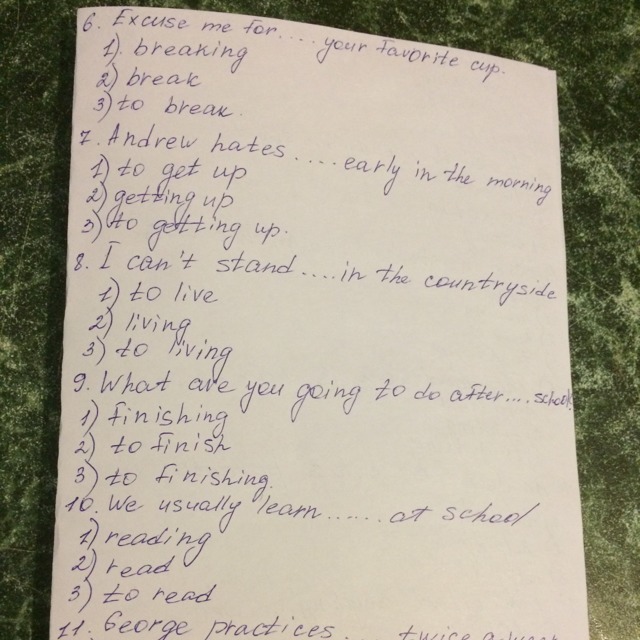 6. Excuse me for.... your favorite cup.
1) breaking
2) break
3) to break.
7. Andrew hates ..... early in the morning
1) to get up
2) getting up
3) to getting up.
8. I can't stand ..... in the countryside
1) to live
2) living
3) to living
9. What are you going to do after.... school
1) finishing
2) to finish
3) to finishing.
10. We usually learn...... at school
1) reading
2) read
3) to read
11. George practices .... twice a